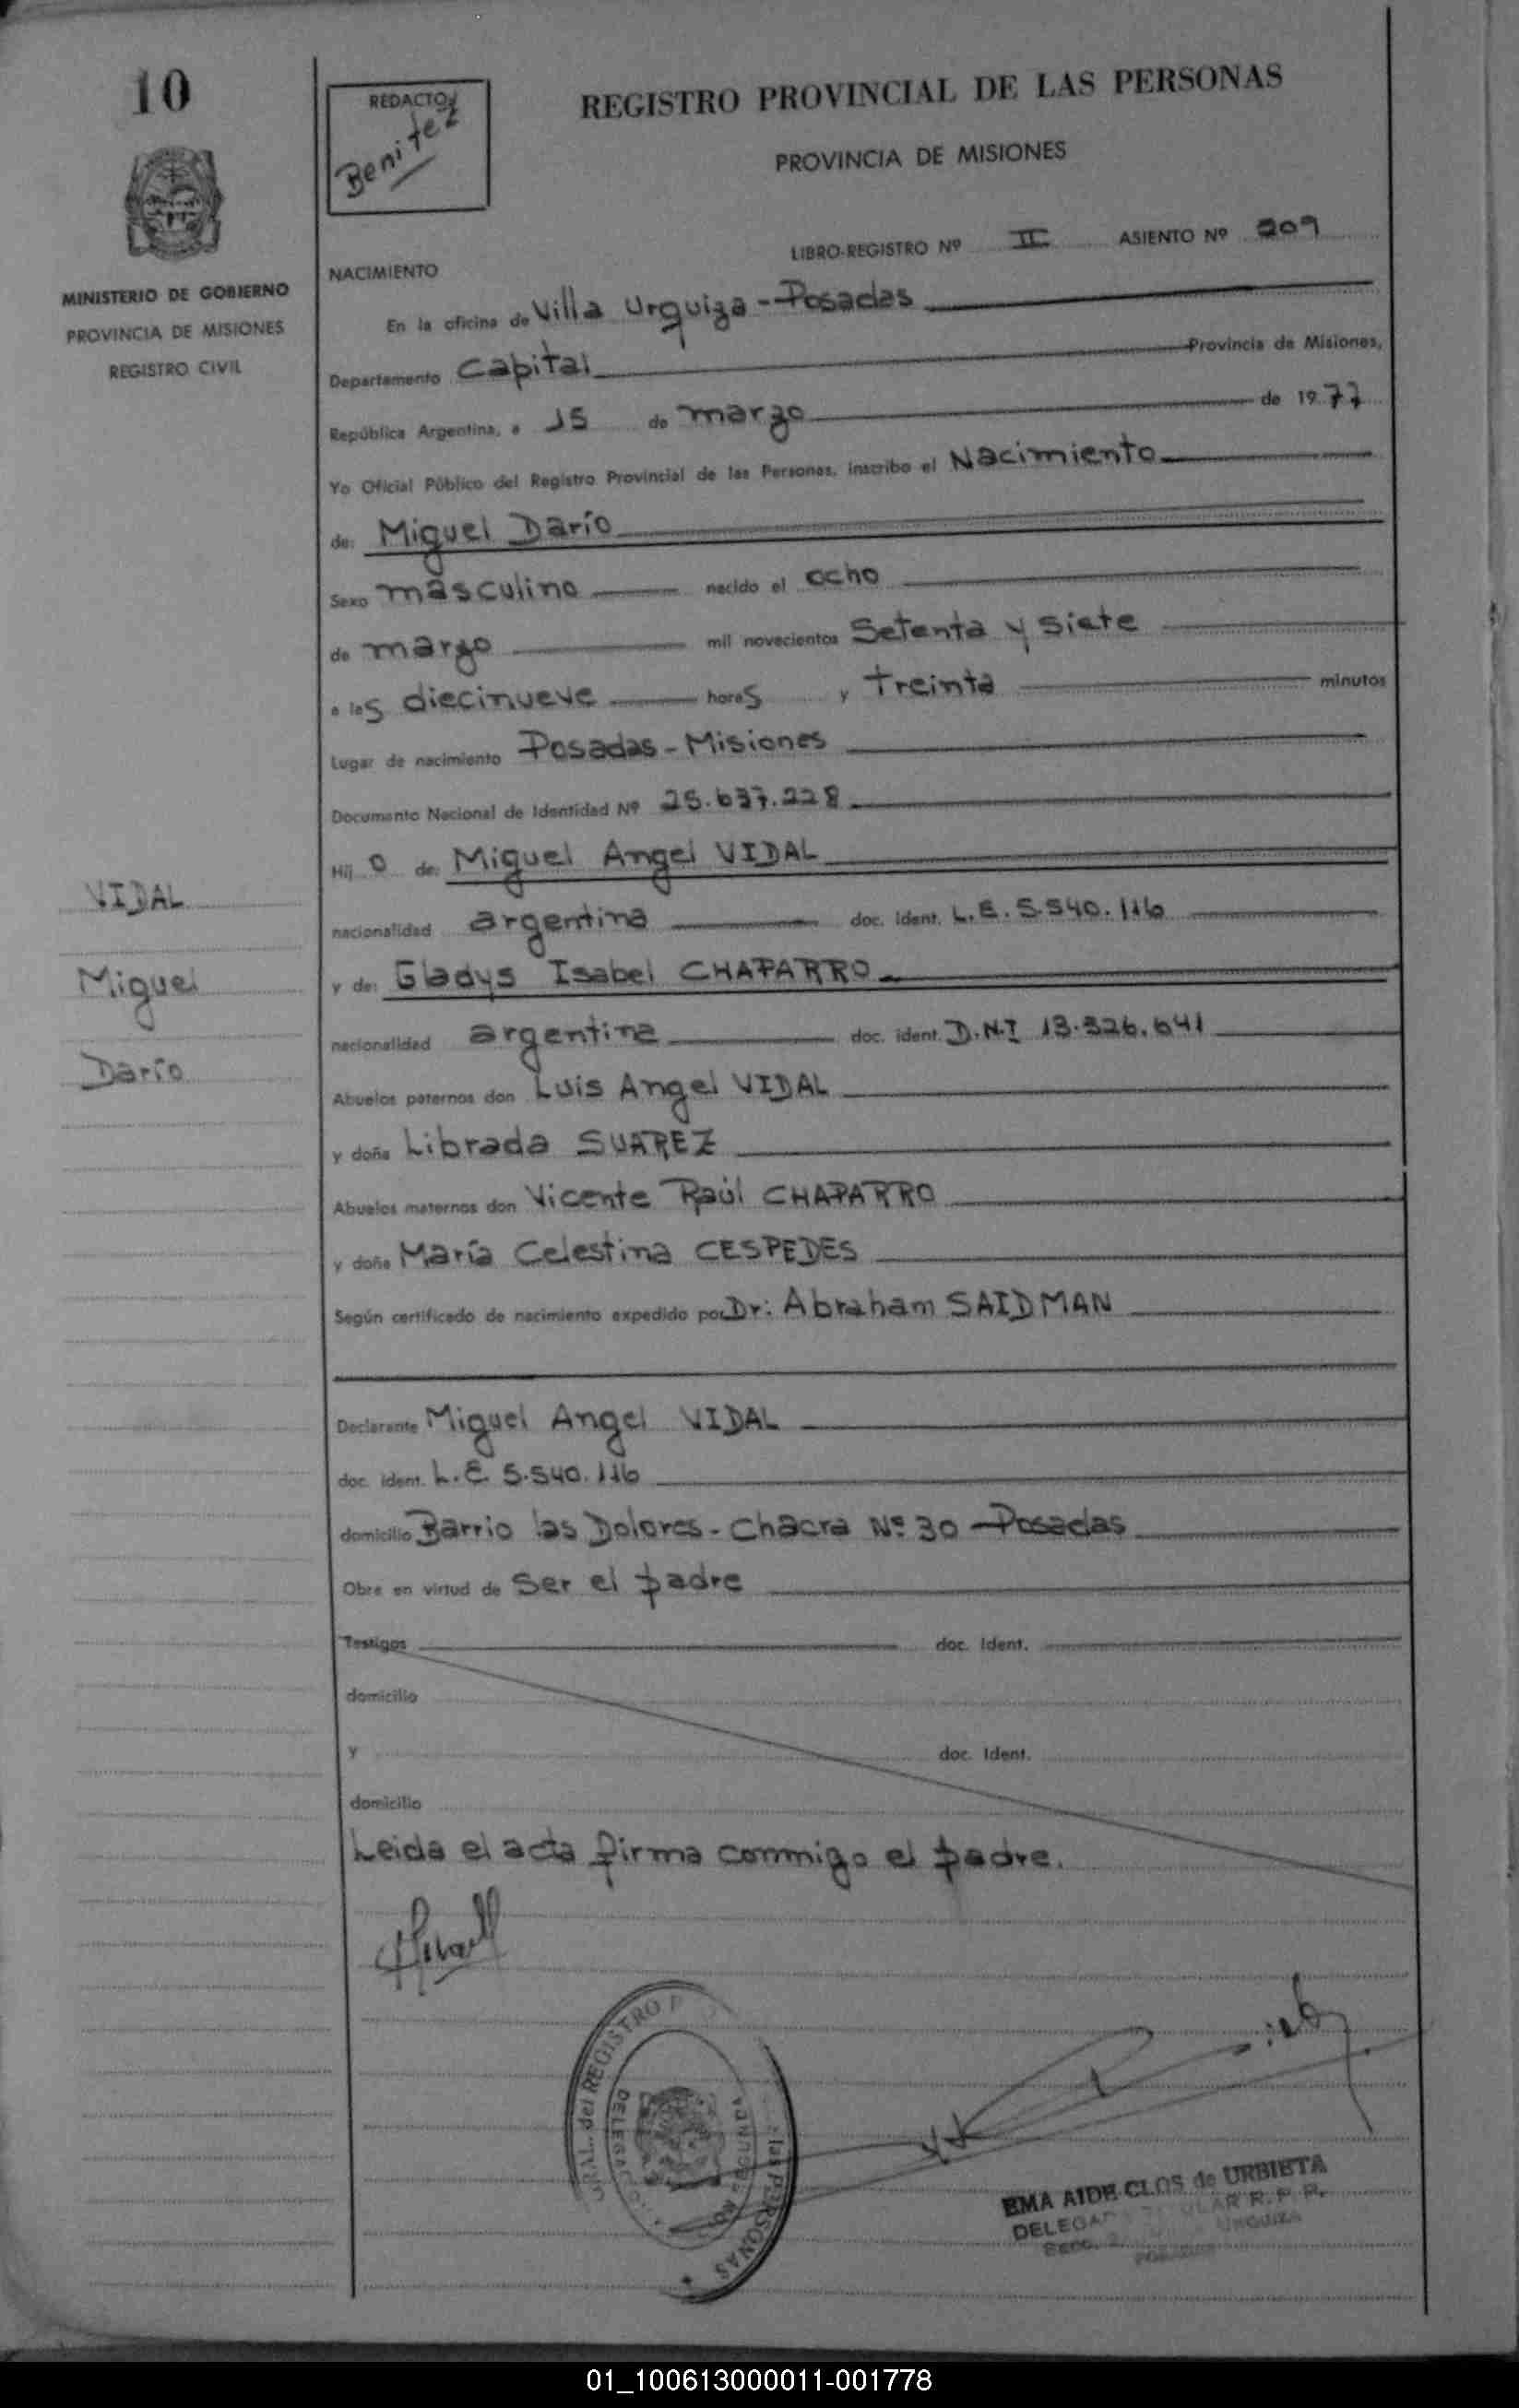 10
REDACTOR
Benitez
REGISTRO PROVINCIAL DE LAS PERSONAS
PROVINCIA DE MISIONES
MINISTERIO DE GOBIERNO
PROVINCIA DE MISIONES
REGISTRO CIVIL
LIBRO-REGISTRO Nº II ASIENTO Nº 209
NACIMIENTO
En la oficina de Villa Urquiza - Posadas
Departamento Capital Provincia de Misiones,
República Argentina, a 15 de marzo de 1977
Yo Oficial Público del Registro Provincial de las Personas, inscribo el Nacimiento
de: Miguel Darío
Sexo masculino nacido el ocho
de marzo mil novecientos Setenta y siete
a las diecinueve horas y treinta minutos
Lugar de nacimiento Posadas - Misiones
Documento Nacional de Identidad Nº 25.637.228
Hij o de: Miguel Angel VIDAL
nacionalidad argentina doc. ident. L.E. 5.540.116
y de: Gladys Isabel CHAPARRO
nacionalidad argentina doc. ident. D.N.I 13.326.641
Abuelos paternos don Luis Angel VIDAL
y doña Librada SUAREZ
Abuelos maternos don Vicente Raúl CHAPARRO
y doña María Celestina CESPEDES
Según certificado de nacimiento expedido por Dr: Abraham SAIDMAN
Declarante Miguel Angel VIDAL
doc. ident. L.E. 5.540.116
domicilio Barrio las Dolores - Chacra Nº 30 - Posadas
Obra en virtud de ser el padre
Testigos doc. ident.
domicilio
y doc. ident.
domicilio
Leida el acta firma conmigo el padre.
VIDAL
Miguel
Darío
GRAL. del REGISTRO P
las PERSONAS
EMA AIDE CLOS de URBIETA
R. P. P.
URQUIZA
01_100613000011-001778